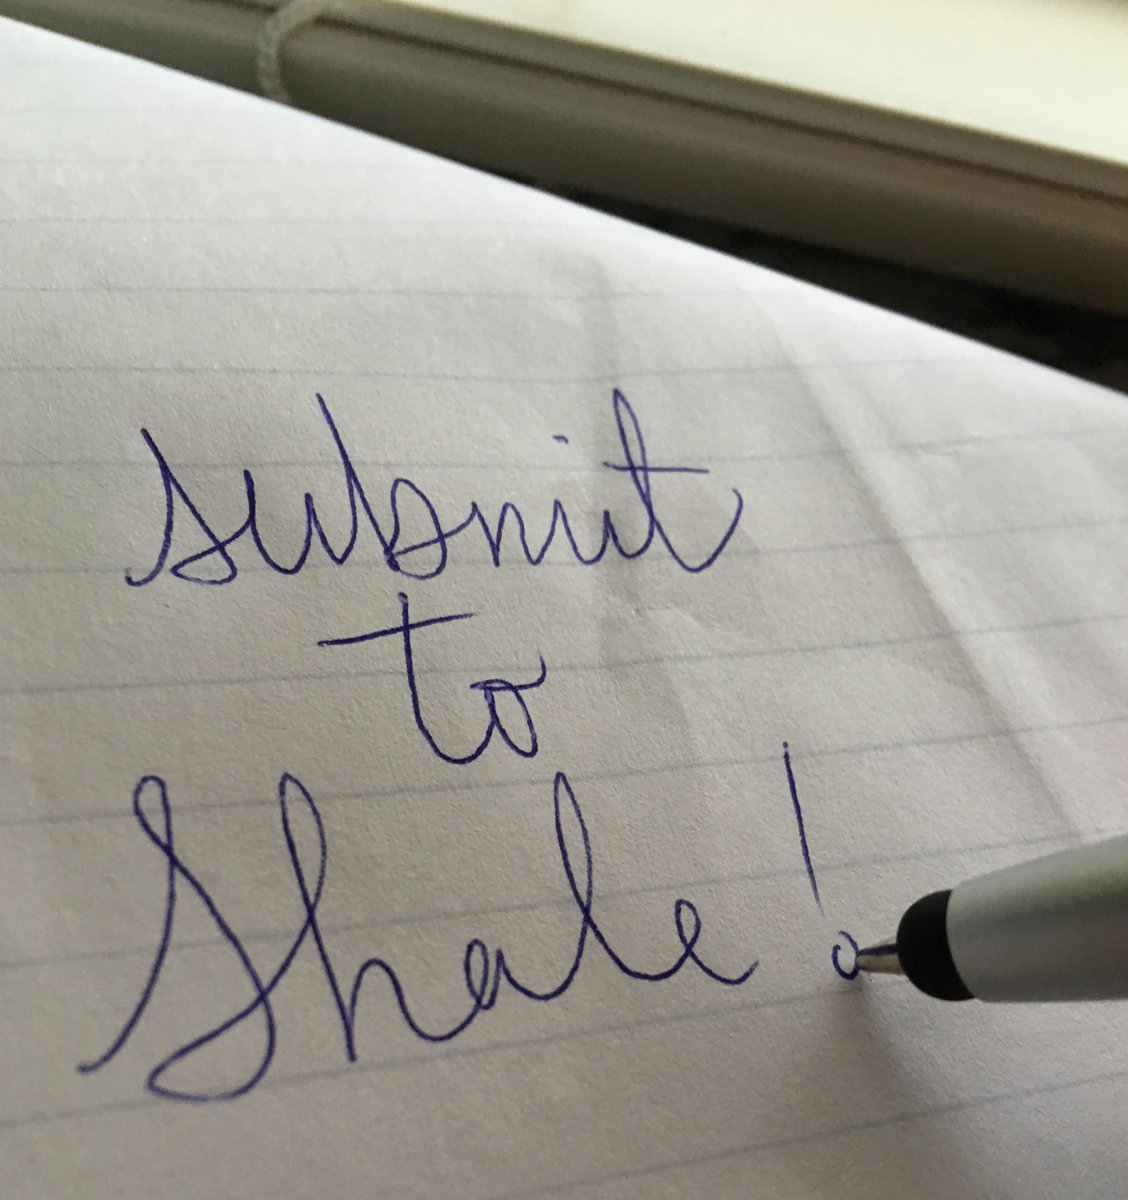 submit
to
Shale!